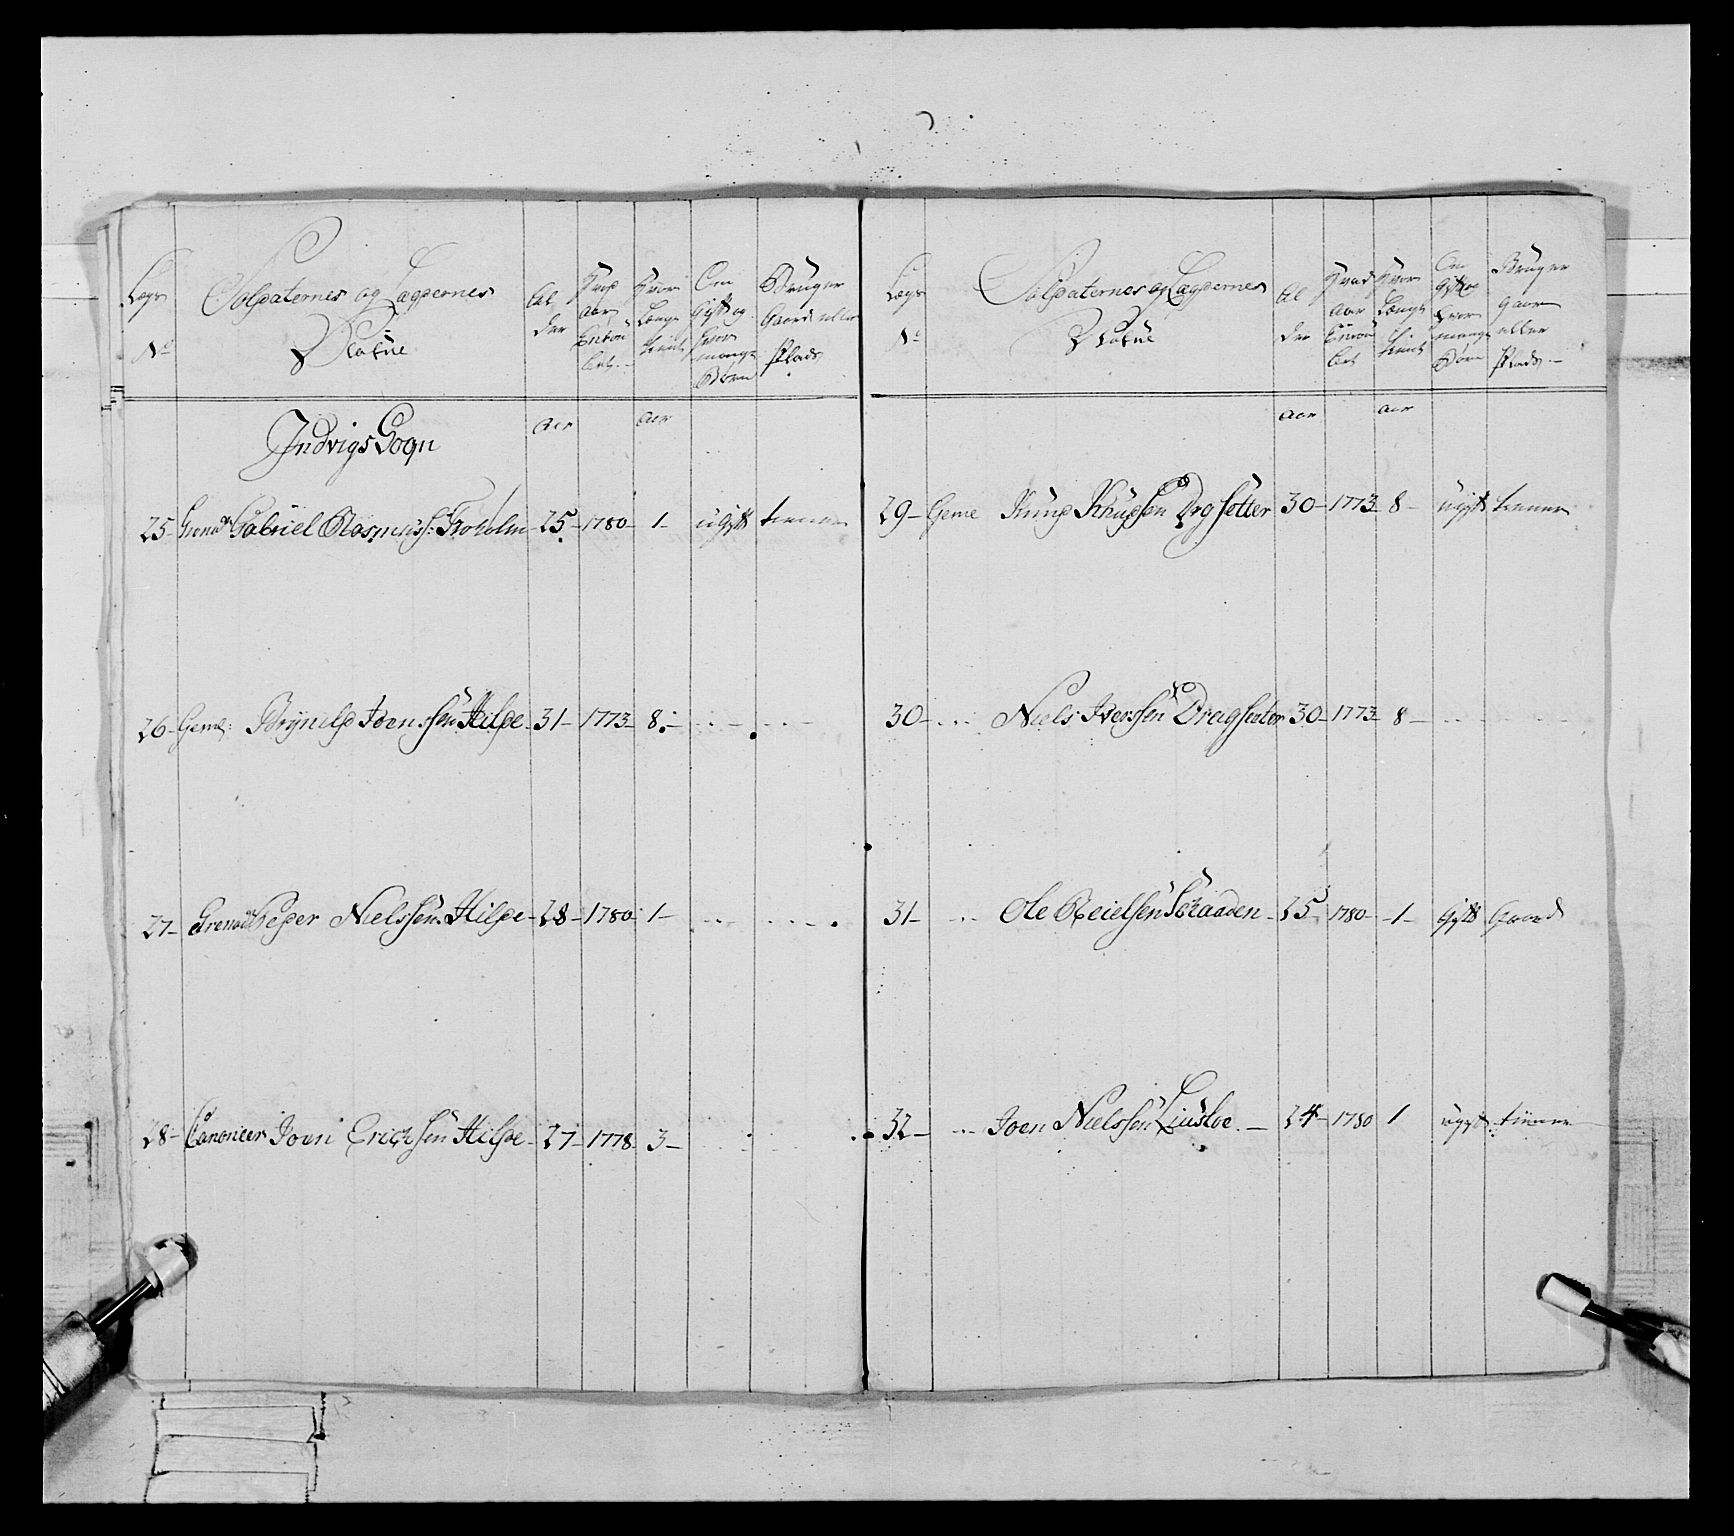 Lægs No | Soldaternes og Lægdernes Nafne | Al der | Hvad aar Enroul lert | Hvor Længe tient | Om Gift og hvor mange Børn | Bruger Gaard eller Plads
Aar | Aar
Indvigs Sogn
25 – Grenad: Gabriel Rasmuss: Froholm – 25 – 1780 – 1 – ugift tienner
26 – Geml: Brynild Joenssen Hilde – 31 – 1773 – 8 –
27 – Grenad Peder Nielssen Hilde – 28 – 1780 – 1 –
28 – Canoneer Joen Erichsen Hilde – 27 – 1778 – 3 –
Lægs No | Soldaternes og Lægdernes Nafne | Al der | Hvad aar Enroul lert | Hvor Længe tient | Om Gift og hvor mange Børn | Bruger gaar eller Plads –
Aar | Aar
29 – Geme Knud Knudsen Drgsetter 30 – 1773 – 8 – ugift tienner
30 – Niels Iverssen Dragseter 30 – 1773 – 8 –
31 – Ole Reielsen Skaaden – 25 – 1780 – 1 – Gift Gaard
32 – Joen Nielssen – 24 – 1780 1 ugift tienner